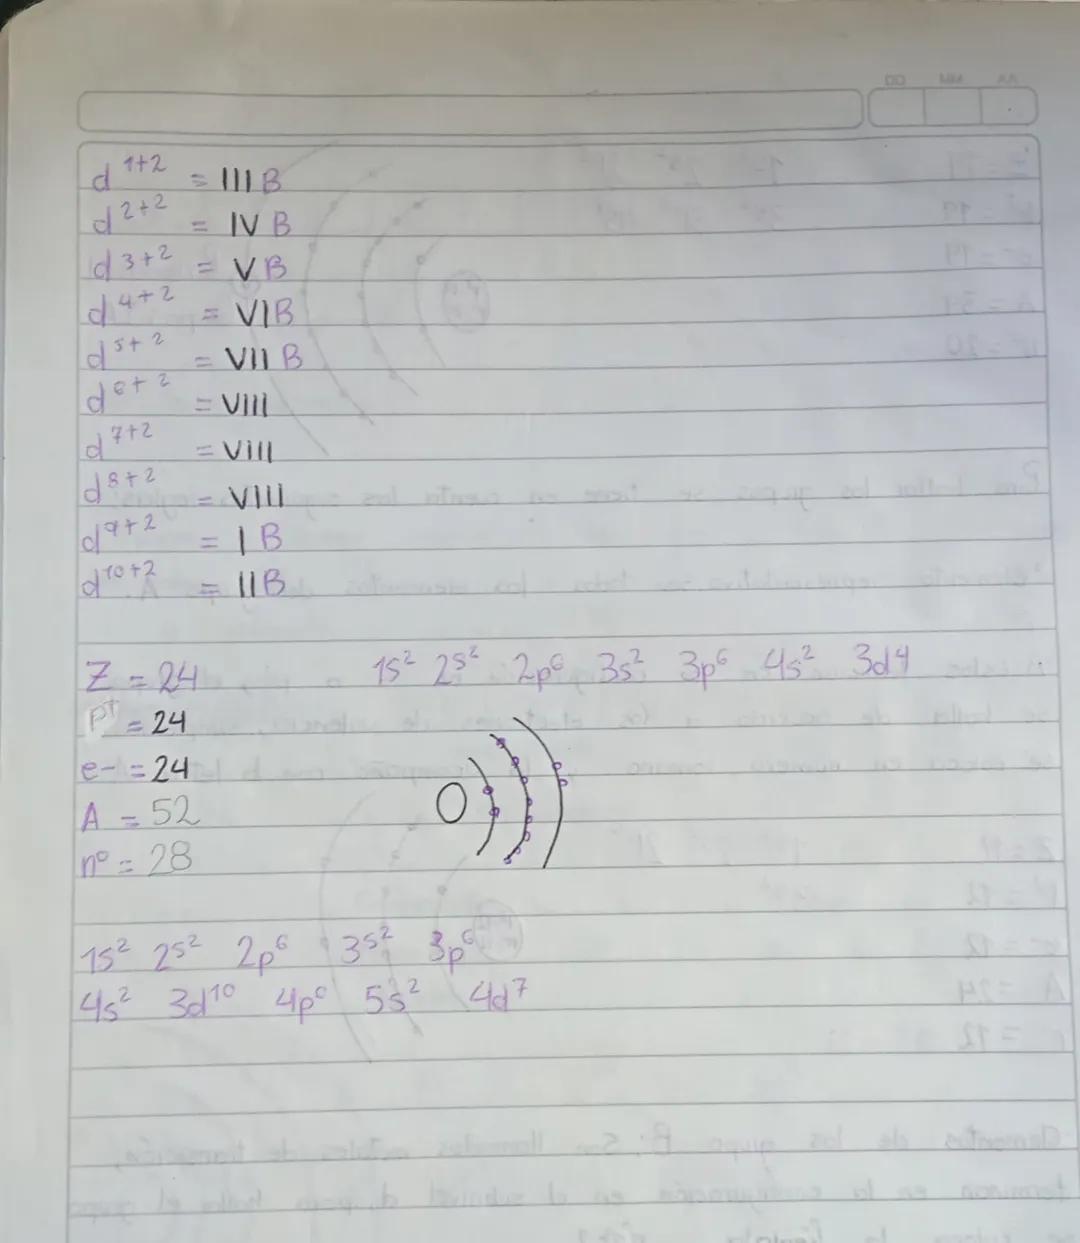 DD MM AA
d 1+2 = III B
d 2+2 = IV B
d 3+2 = V B
d 4+2 = VIB
d 5+2 = VII B
d 6+2 = VIII
d 7+2 = VIII
d 8+2 = VIII
d 9+2 = I B
d 10+2 = II B
Z = 24 1s² 2s² 2p⁶ 3s² 3p⁶ 4s² 3d4
P+ = 24
e- = 24
A = 52
n° = 28
1s² 2s² 2p⁶ 3s² 3p⁶
4s² 3d¹⁰ 4p⁶ 5s² 4d⁷